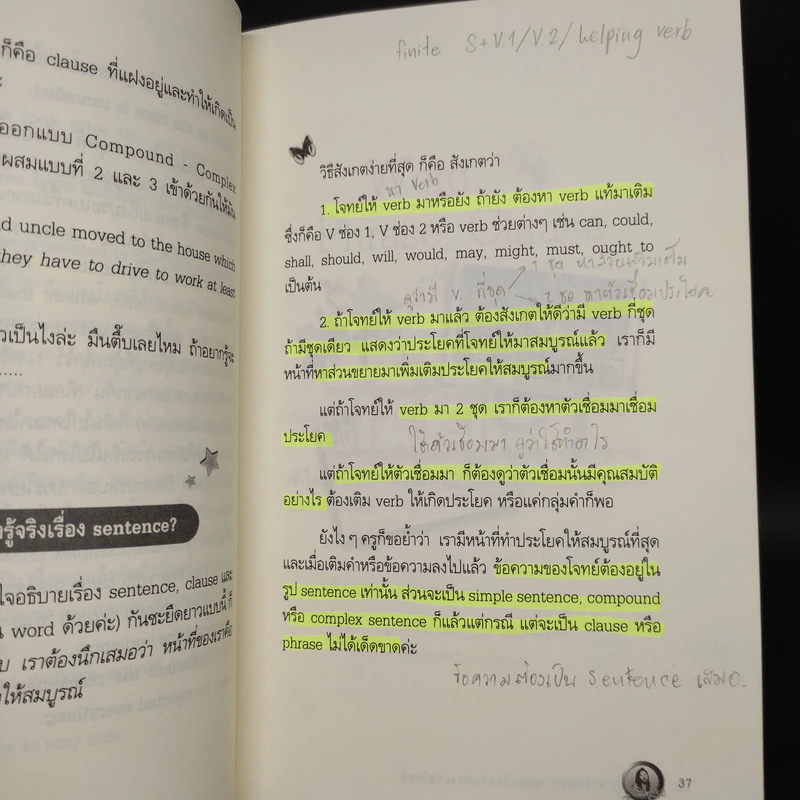 ก็คือ clause ที่แฝงอยู่และทำให้เกิดเป็น
ออกแบบ Compound - Complex
ผสมแบบที่ 2 และ 3 เข้าด้วยกันให้มัน
d uncle moved to the house which
they have to drive to work at least
วเป็นไงล่ะ มึนตึ้บเลยไหม ถ้าอยากรู้จะ
.....
รู้จริงเรื่อง sentence?
ใจอธิบายเรื่อง sentence, clause และ
น word ด้วยค่ะ) กันซะยืดยาวแบบนี้ ก็
บ เราต้องนึกเสมอว่า หน้าที่ของเราคือ
ให้สมบูรณ์
finite S+V.1/V.2/helping verb
วิธีสังเกตง่ายที่สุด ก็คือ สังเกตว่า
หา verb
1. โจทย์ให้ verb มาหรือยัง ถ้ายัง ต้องหา verb แท้มาเติม
ซึ่งก็คือ V ช่อง 1, V ช่อง 2 หรือ verb ช่วยต่างๆ เช่น can, could,
shall, should, will, would, may, might, must, ought to
เป็นต้น
1 ชุด หาส่วนขยายเติม
ดูว่ามี v. กี่ชุด
2 ชุด หาตัวเชื่อมประโยค
2. ถ้าโจทย์ให้ verb มาแล้ว ต้องสังเกตให้ดีว่ามี verb กี่ชุด
ถ้ามีชุดเดียว แสดงว่าประโยคที่โจทย์ให้มาสมบูรณ์แล้ว เราก็มี
หน้าที่หาส่วนขยายมาเพิ่มเติมประโยคให้สมบูรณ์มากขึ้น
แต่ถ้าโจทย์ให้ verb มา 2 ชุด เราก็ต้องหาตัวเชื่อมมาเชื่อม
ประโยค
ให้ตัวเชื่อมมา ดูว่าใช้ทำอะไร
แต่ถ้าโจทย์ให้ตัวเชื่อมมา ก็ต้องดูว่าตัวเชื่อมนั้นมีคุณสมบัติ
อย่างไร ต้องเติม verb ให้เกิดประโยค หรือแค่กลุ่มคำก็พอ
ยังไง ๆ ครูก็ขอย้ำว่า เรามีหน้าที่ทำประโยคให้สมบูรณ์ที่สุด
และเมื่อเติมคำหรือข้อความลงไปแล้ว ข้อความของโจทย์ต้องอยู่ใน
รูป sentence เท่านั้น ส่วนจะเป็น simple sentence, compound
หรือ complex sentence ก็แล้วแต่กรณี แต่จะเป็น clause หรือ
phrase ไม่ได้เด็ดขาดค่ะ
ข้อความต้องเป็น sentence เสมอ.
37